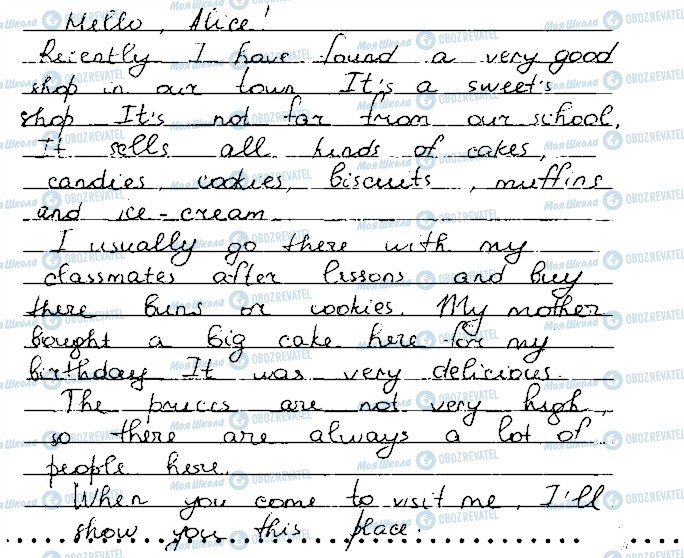 Hello, Alice!
Recently I have found a very good
shop in our town. It's a sweet's
shop. It's not far from our school.
It sells all kinds of cakes,
candies, cookies, biscuits, muffins
and ice-cream.
I usually go there with my
classmates after lessons and buy
there buns or cookies. My mother
bought a big cake here for my
birthday. It was very delicious.
The prices are not very high,
so there are always a lot of
people here.
When you come to visit me, I'll
show you this place.